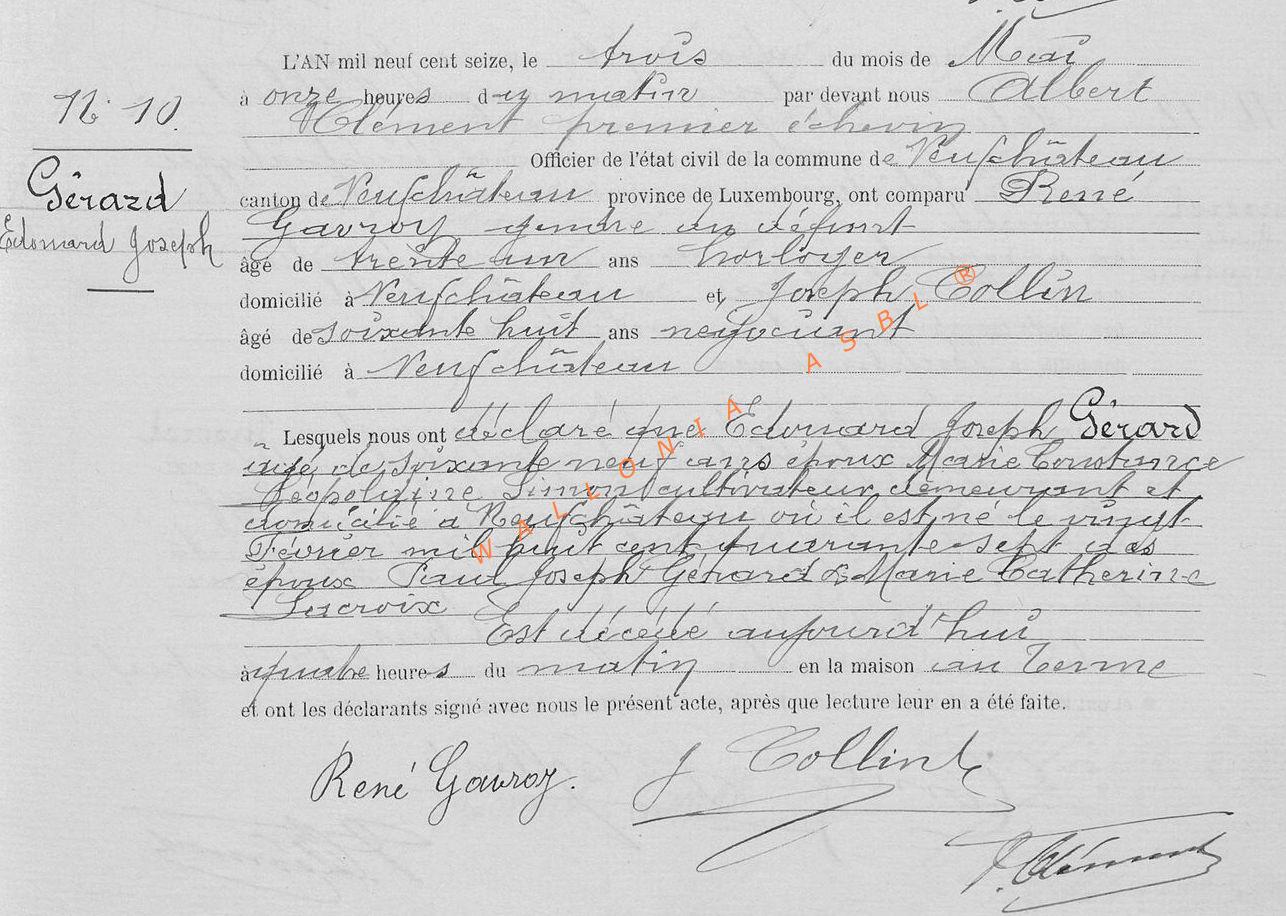 L'AN mil neuf cent seize, le trois du mois de Mai
à onze heures du matin par devant nous Albert
Clément premier échevin
Officier de l'état civil de la commune de Neufchâteau
canton de Neufchâteau province de Luxembourg, ont comparu René
Gavroy gendre du défunt
âgé de trente un ans horloger
domicilié à Neufchâteau et Joseph Collin
âgé de soixante huit ans négociant
domicilié à Neufchâteau
N° 10.
Gérard
Edouard Joseph
Lesquels nous ont déclaré que Edouard Joseph Gérard
âgé de soixante neuf ans époux Marie Constance
Léopoldine Simon cultivateur demeurant et
domicilié à Neufchâteau où il est né le vingt
Février mil huit cent quarante sept des
époux Paul Joseph Gérard & Marie Catherine
Lacroix
Est décédé aujourd'hui
à quatre heures du matin en la maison au Terme
et ont les déclarants signé avec nous le présent acte, après que lecture leur en a été faite.
René Gavroy.
J Collin
Clément
WALLONIA ASBL ®